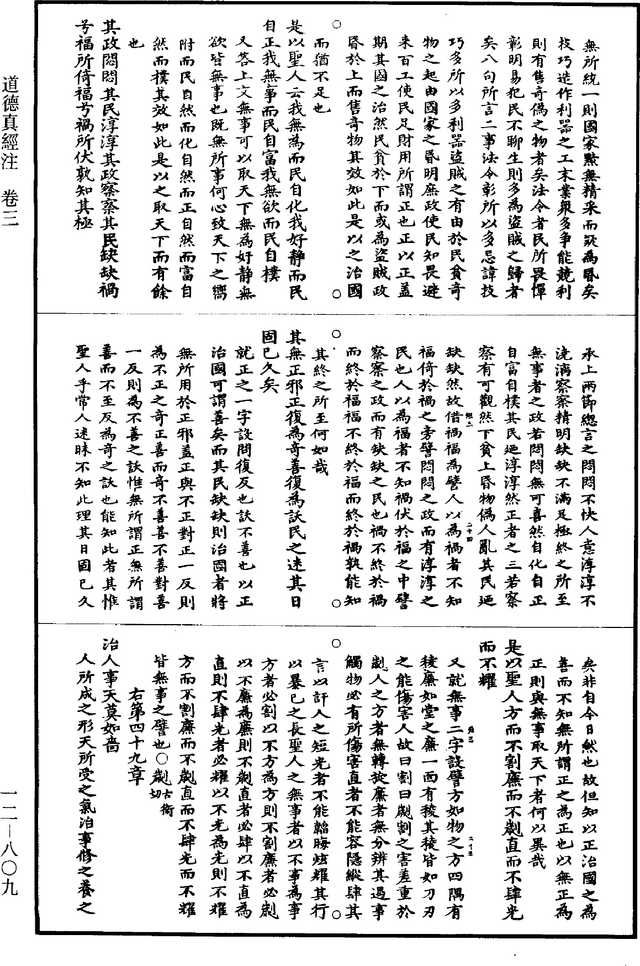 道德真經注　卷三
無所統一則國家黙無精采而衰為昬矣
技巧造作利器之工本業最多爭能競利
則有售奇偽之物者矣法令者民所畏憚
彰明易犯民不聊生則多為盜賊之歸者
矣八句所言二事法令彰所以多忌諱技
巧多所以多利器盜賊之有由於民貧奇
物之起由國家之昬明庶政使民知畏避
来百工使民足財用所謂正也正以正蓋
期其國之治然民貧於下而或為盜賊政
昬於上而售奇物其效如此是以之治國
而猶不足也
是以聖人云我無為而民自化我好静而民
自正我無事而民自富我無欲而民自樸
又答上文無事可以取天下無為好静無
欲皆無事也既無所事何心致天下之嚮
附而民自然而化自然而正自然而富自
然而樸其效如此是以之取天下而有餘
也
其政悶悶其民淳淳其政察察其民缺缺禍
兮福所倚福兮禍所伏孰知其極
承上兩節總言之悶悶不快人意淳淳不
澆漓察察精明缺缺不滿足極終之所至
無事者之政若悶悶無可喜然自化自正
自富自樸其民廼淳淳然正者之三若察
察有可觀然下貧上昬物偽人亂其民廼
缺缺然故借禍福為譬人以為禍者不知
福倚於禍之旁譬悶悶之政而有淳淳之
民也人以為福者不知禍伏於福之中譬
察察之政而有缺缺之民也禍不終於禍
而終於福福不終於福而終於禍孰能知
其終之所至何如哉
其無正邪正復為奇善復為訞民之迷其日
固已久矣
就正之一字設問復反也訞不善也以正
治國可謂善矣而其民缺缺則治國者將
無所用於正邪蓋正與不正對正一反則
為不正之奇正善而奇不善善不善對善
一反則為不善之訞惟無所謂正無所謂
善而不至反為奇之訞也能知此者其惟
聖人乎常人迷昧不知此理其日固已久
矣非自今日然也故但知以正治國之為
善而不知無所謂正之為正也以無正為
正則與無事取天下者何以異哉
是以聖人方而不割廉而不劌直而不肆光
而不耀
又就無事二字設譬方如物之方四隅有
稜廉如堂之廉一面有稜其稜皆如刀刃
之能傷害人故曰割曰劌割之害差重於
劌人之方者無轉旋廉者無分辨其遇事
觸物必有所傷害直者不能容隱縱肆其
言以訐人之短光者不能韜晦炫耀其行
以暴已之長聖人之無事者以不事為事
方者必割以不方為方則不割廉者必劌
以不廉為廉則不劌直者必肆以不直為
直則不肆光者必耀以不光為光則不耀
方而不割廉而不劌直而不肆光而不耀
皆無事之譬也○劌古衛切
右第四十九章
治人事天莫如嗇
人所成之形天所受之氣治事脩之養之
一二—八〇九